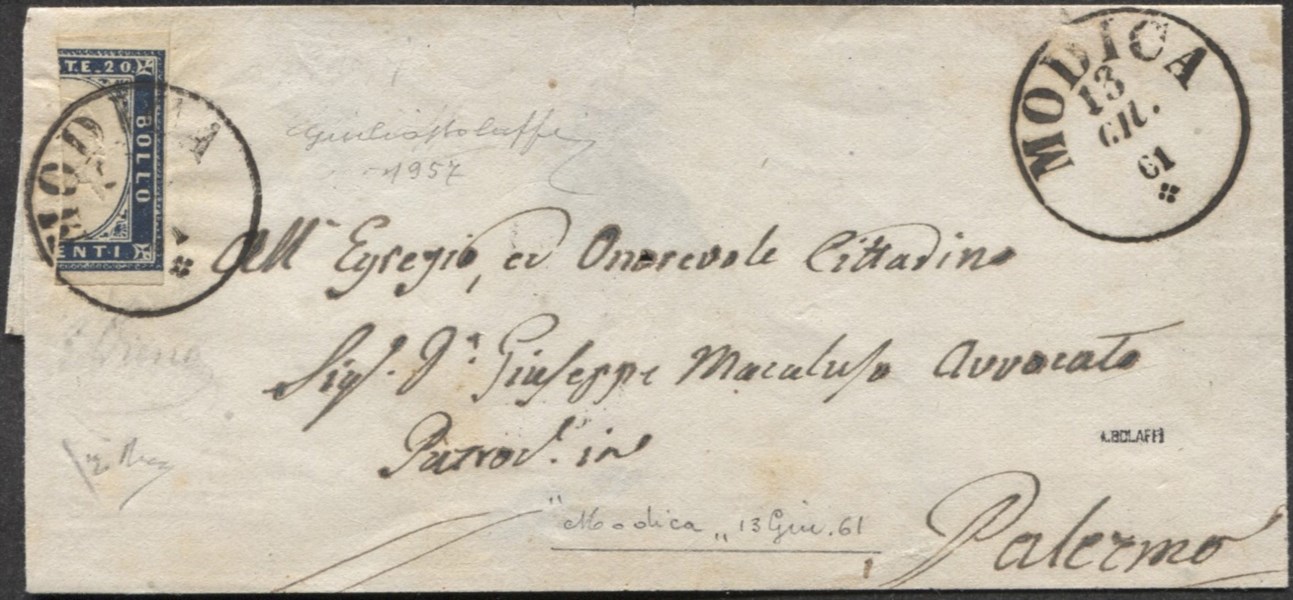 TE. 20
BOLLO
ENTI
MODICA
MODICA
13
GIU.
61
Giulio Bolaffi
1957
All' Egregio, ed Onorevole Cittadino
Sigr. Dn. Giuseppe Macaluso Avvocato
Patrod.e in
A.BOLAFFI
"Modica„ 13 Giu. 61
Palermo